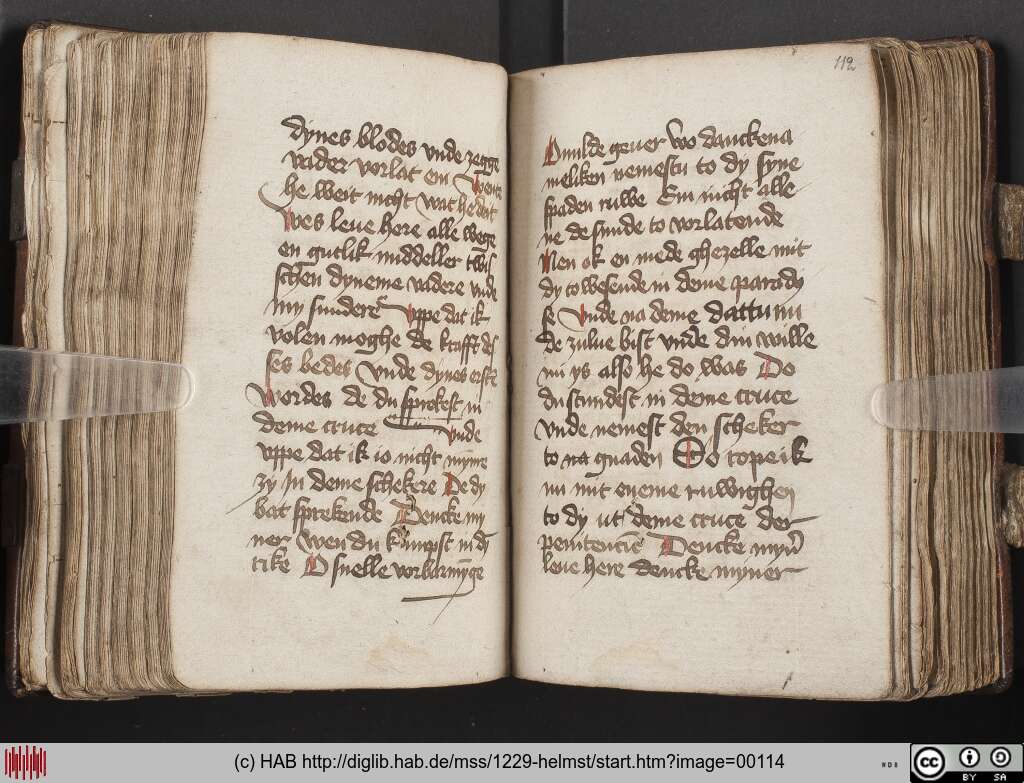 dynes blodes vnde zegge
vader vorlat em Wente
he weit nicht wat he dat
Wes leue here alle wege
en gutlik middeller twis
schen dyneme vadere vnde
my sundere vppe dat ik
volen moghe de krafft des
ses bedes vnde dynes erste
wordes de du sprekest in
deme cruce vnde
vppe dat ik io nicht myne
zy In deme schekere De dy
bat sprekende Dencke my
ner wen du kumpst in dy
rike O snelle vorbarmyge
112
O milde geuer wo danckena
meliken nemestu to dy syne
spaden ruwe Em nicht alle
ne de sunde to vorlatende
Men ok en mede ghezelle mit
dy to wesende in deme parady
se Vnde na deme dattu nu
de zulue bist vnde din wille
nu ys also he do was Do
du stundest in deme cruce
vnde nemest den scheker
to na gnaden So rope ik
nu mit eneme ruwighen
to dy ut deme cruce der
penitencie Dencke myner
leue here dencke myner
(c) HAB http://diglib.hab.de/mss/1229-helmst/start.htm?image=00114
WDB
cc BY SA